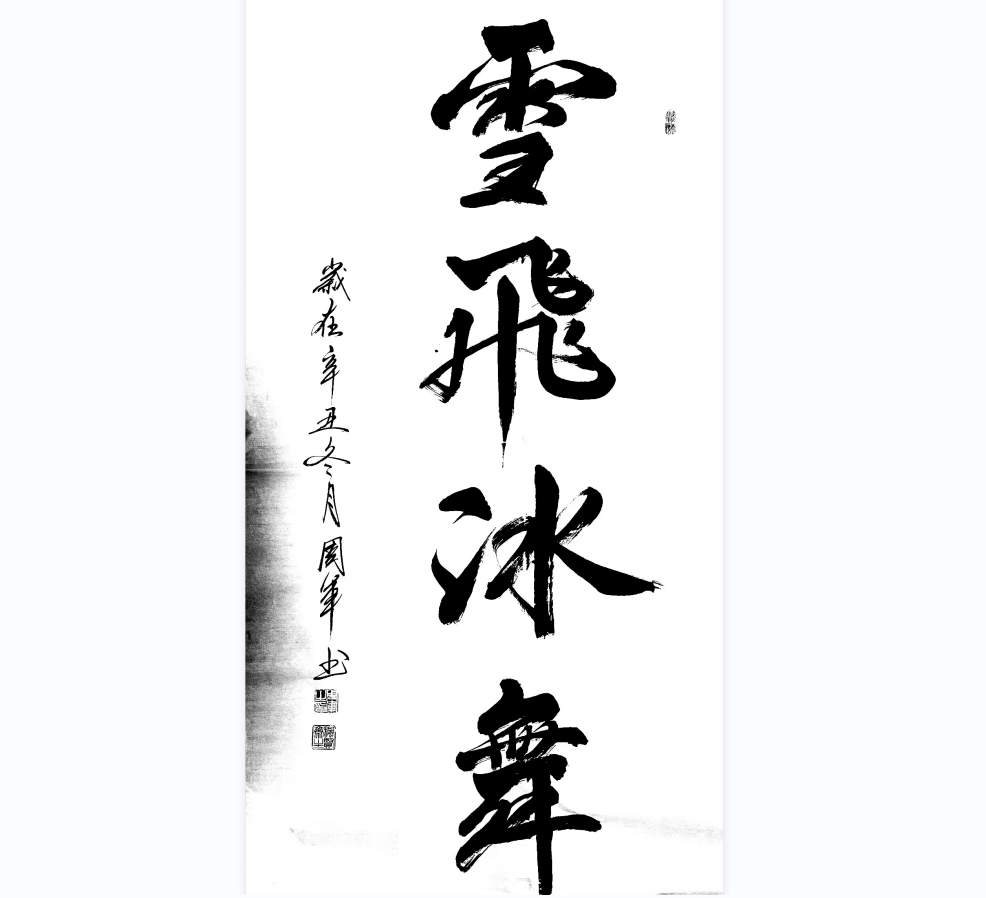 雪飛冰舞
歲在辛丑冬月周軍书